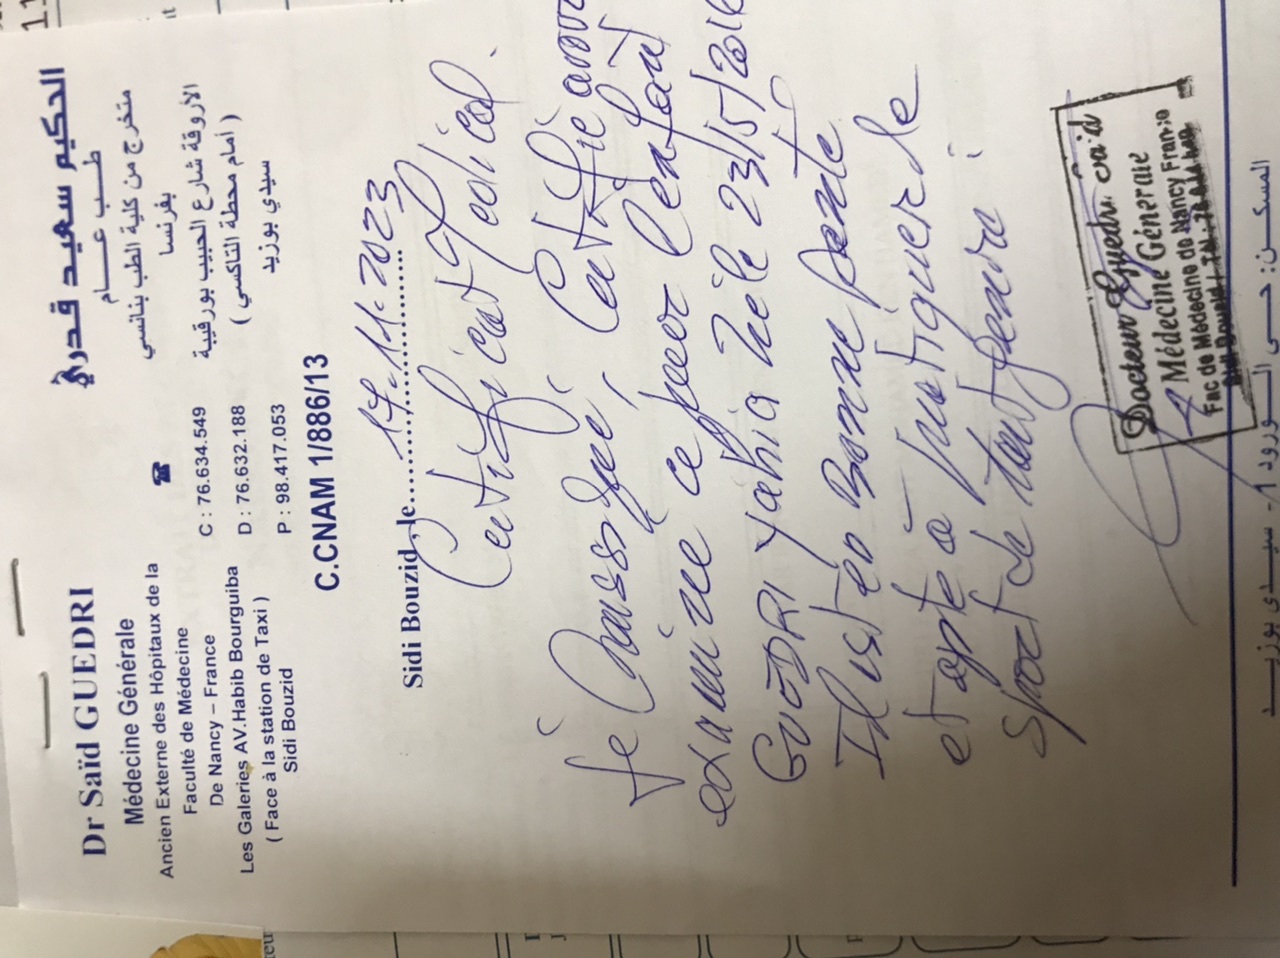 Dr Saïd GUEDRI
Médecine Générale
Ancien Externe des Hôpitaux de la
Faculté de Médecine
De Nancy – France
Les Galeries AV.Habib Bourguiba
( Face à la station de Taxi )
Sidi Bouzid
الحكيم سعيد قدري
طب عام
متخرج من كلية الطب بنانسي
بفرنسا
الأروقة شارع الحبيب بورقيبة
( أمام محطة التاكسي )
سيدي بوزيد
☎
C : 76.634.549
D : 76.632.188
P : 98.417.053
C.CNAM 1/886/13
Sidi Bouzid, le 17.11.2023
Certificat Medical.
Je Soussigné, Certifie avoir
examiné ce jour l'enfant
GUEDRI Yahia né le 23/5/2016
Il est en Bonne Sante
et apte à pratiquer le
sport
Docteur Guedri Said
Médecine Générale
Fac de Médecine de Nancy France
المسكن: حي الورود 1 - سيدي بوزيد